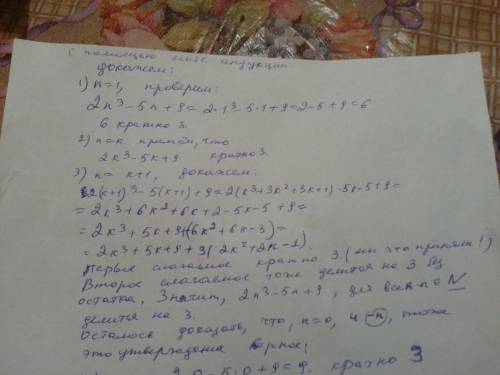 С помощью мат индукции
докажем:
1) n=1, проверим:
2n³-5n+9=2·1³-5·1+9=2-5+9=6
6 кратно 3.
2) n=k примем, что
2k³-5k+9 кратно 3.
3) n=k+1, докажем:
2(k+1)³-5(k+1)+9=2(k³+3k²+3k+1)-5k-5+9=
=2k³+6k²+6k+2-5k-5+9=
=2k³+5k+9+(6k²+6k-3)=
=2k³+5k+9+3(2k²+2k-1).
Первое слагаемое кратно 3 (мы это приняли!)
Второе слагаемое тоже делится на 3 без
остатка. Значит, 2n³-5n+9, для всех n∈N
делится на 3.
Осталось доказать, что, n=0, и -n, тоже
это утверждения верное:
0-5·0+9=9. кратно 3